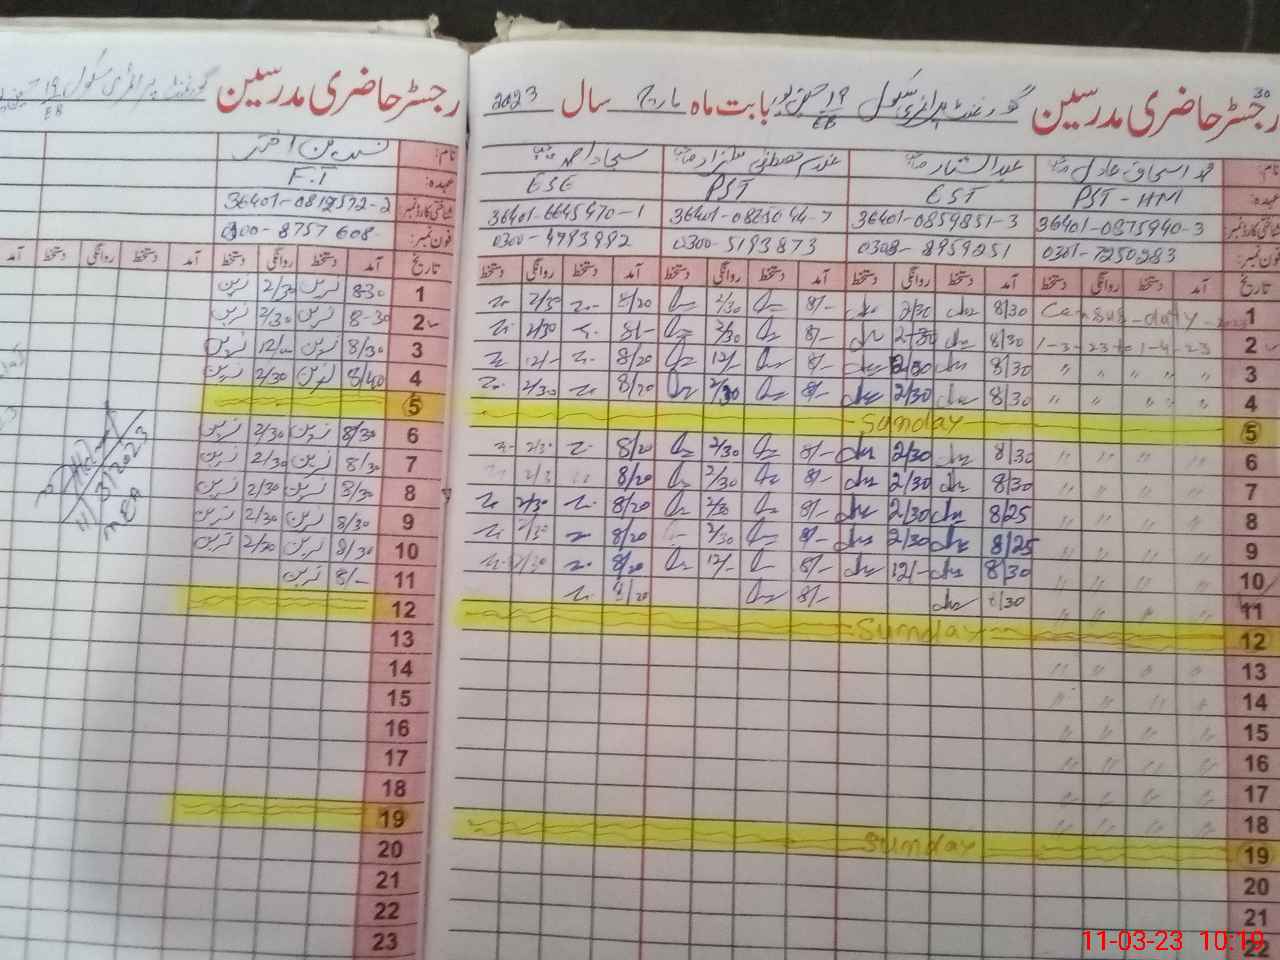 رجسٹر حاضری مدرسین گورنمنٹ پرائمری سکول 19/EB بابت ماہ مارچ سال 2023
30
نام: محمد اسحاق عادل صاحب عبدالستار صاحب غلام مصطفی شہزاد صاحب سجاد احمد صاحب
عہدہ: PST-HM EST PST ESE
شناختی کارڈ نمبر: 36401-0875940-3 36401-0859851-3 36401-6645470-1
فون نمبر: 0301-7250283 0308-8959251 0300-5193873 0300-4793992
تاریخ آمد دستخط روانگی دستخط آمد دستخط روانگی دستخط آمد دستخط روانگی دستخط آمد دستخط روانگی دستخط
1 Census-duty-2023 8/30 2/30 8/- 2/30 8/20 2/30
2 1-3-23 to 1-4-23 8/30 2/30 8/- 2/30 8/- 2/30
3 " " " " 8/30 2/30 8/- 12/- 8/20 12/-
4 " " " " 8/30 2/30 8/- 2/30 8/20 2/30
5 Sunday
6 " " " " 8/30 2/30 8/- 2/30 8/20 2/30
7 " " " " 8/30 2/30 8/- 2/30 8/20 2/3
8 " " " " 8/25 2/30 8/- 2/30 8/20 2/30
9 " " " " 8/25 2/30 8/- 2/30 8/20 2/30
10 " " " " 8/30 12/- 8/- 12/- 8/20 2/30
11 " " " " 8/30 8/- 8/20
12 Sunday
13 " " " "
14 " " " "
15 " " " "
16 " " " "
17 " " " "
18 " " " "
19 Sunday
20
21
22
رجسٹر حاضری مدرسین گورنمنٹ پرائمری سکول 19/EB
نام: نسرین اختر
عہدہ:
شناختی کارڈ نمبر: 36401-0812572-2
فون نمبر: 0300-8757608
تاریخ آمد دستخط روانگی دستخط آمد دستخط روانگی دستخط آمد
1 830 نسرین 2/30 نسرین
2 8-30 نسرین 2/30 نسرین
3 8/30 نسرین 12/- نسرین
4 8/40 نسرین 2/30 نسرین
5
6 8/30 نسرین 2/30 نسرین
7 8/30 نسرین 2/30 نسرین
8 8/30 نسرین 2/30 نسرین
9 8/30 نسرین 2/30 نسرین
10 8/30 نسرین 2/30 نسرین
11 8/- نسرین
12
13
14
15
16
17
18
19
20
21
22
23
11/3/2023
11-03-23 10:19